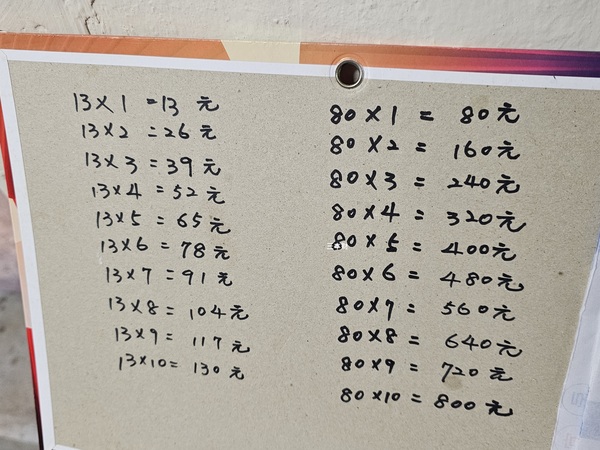 13×1=13元
13×2=26元
13×3=39元
13×4=52元
13×5=65元
13×6=78元
13×7=91元
13×8=104元
13×9=117元
13×10=130元
80×1=80元
80×2=160元
80×3=240元
80×4=320元
80×5=400元
80×6=480元
80×7=560元
80×8=640元
80×9=720元
80×10=800元